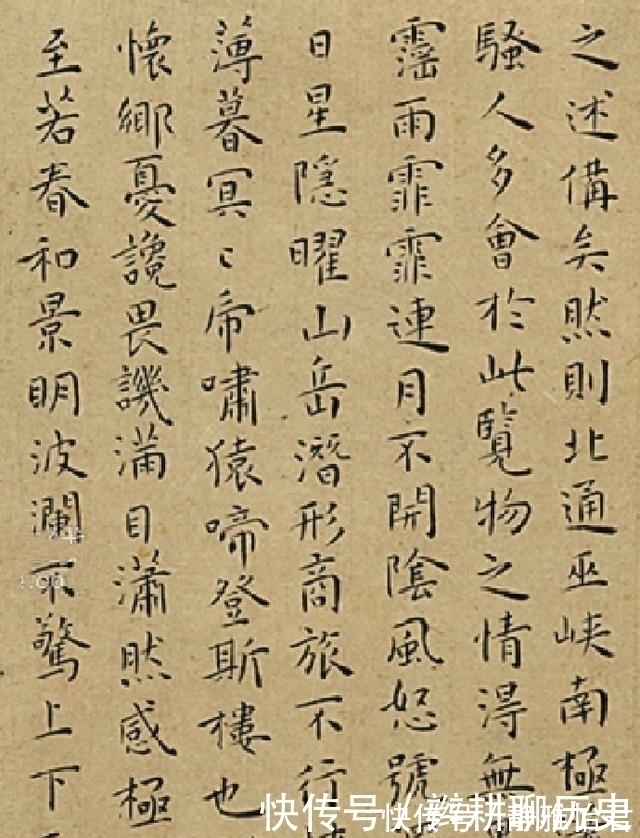 之述備矣然則北通巫峽南極
騷人多會於此覽物之情得無
霪雨霏霏連月不開陰風怒號
日星隱曜山岳潛形商旅不行
薄暮冥〻乕嘯猿啼登斯樓也
懷鄉憂讒畏譏滿目瀟然感極
至若春和景明波瀾不驚上下
快传号
耕聊历史
快传号